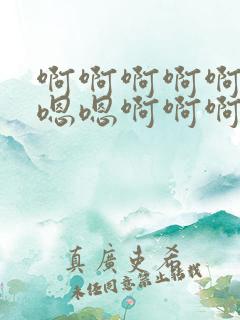 啊啊啊啊啊
嗯嗯啊啊啊
真廣史希
未经同意禁止转载